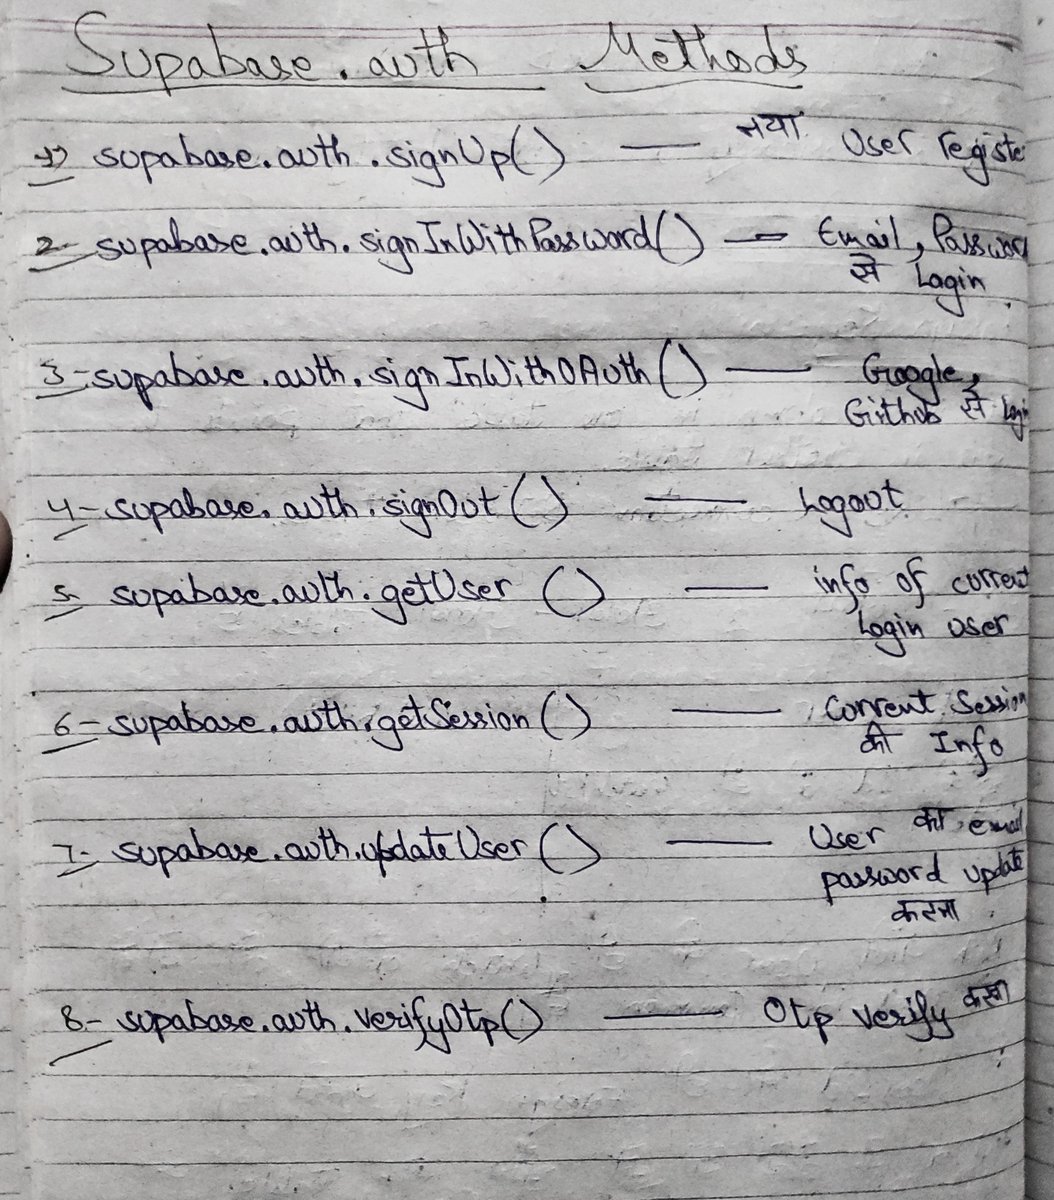 Supabase.auth Methods
1) supabase.auth.signUp() — नया User registe
2- supabase.auth.signInWithPassword() — Email, Password
से Login
3- supabase.auth.signInWithOAuth() — Google,
Github से Login
4- supabase.auth.signOut() — Logout
5- supabase.auth.getUser () — info of current
Login user
6- supabase.auth.getSession() — Current Session
की Info
7- supabase.auth.updateUser() — User का email
password update
करना
8- supabase.auth.verifyOtp() — Otp verify करना